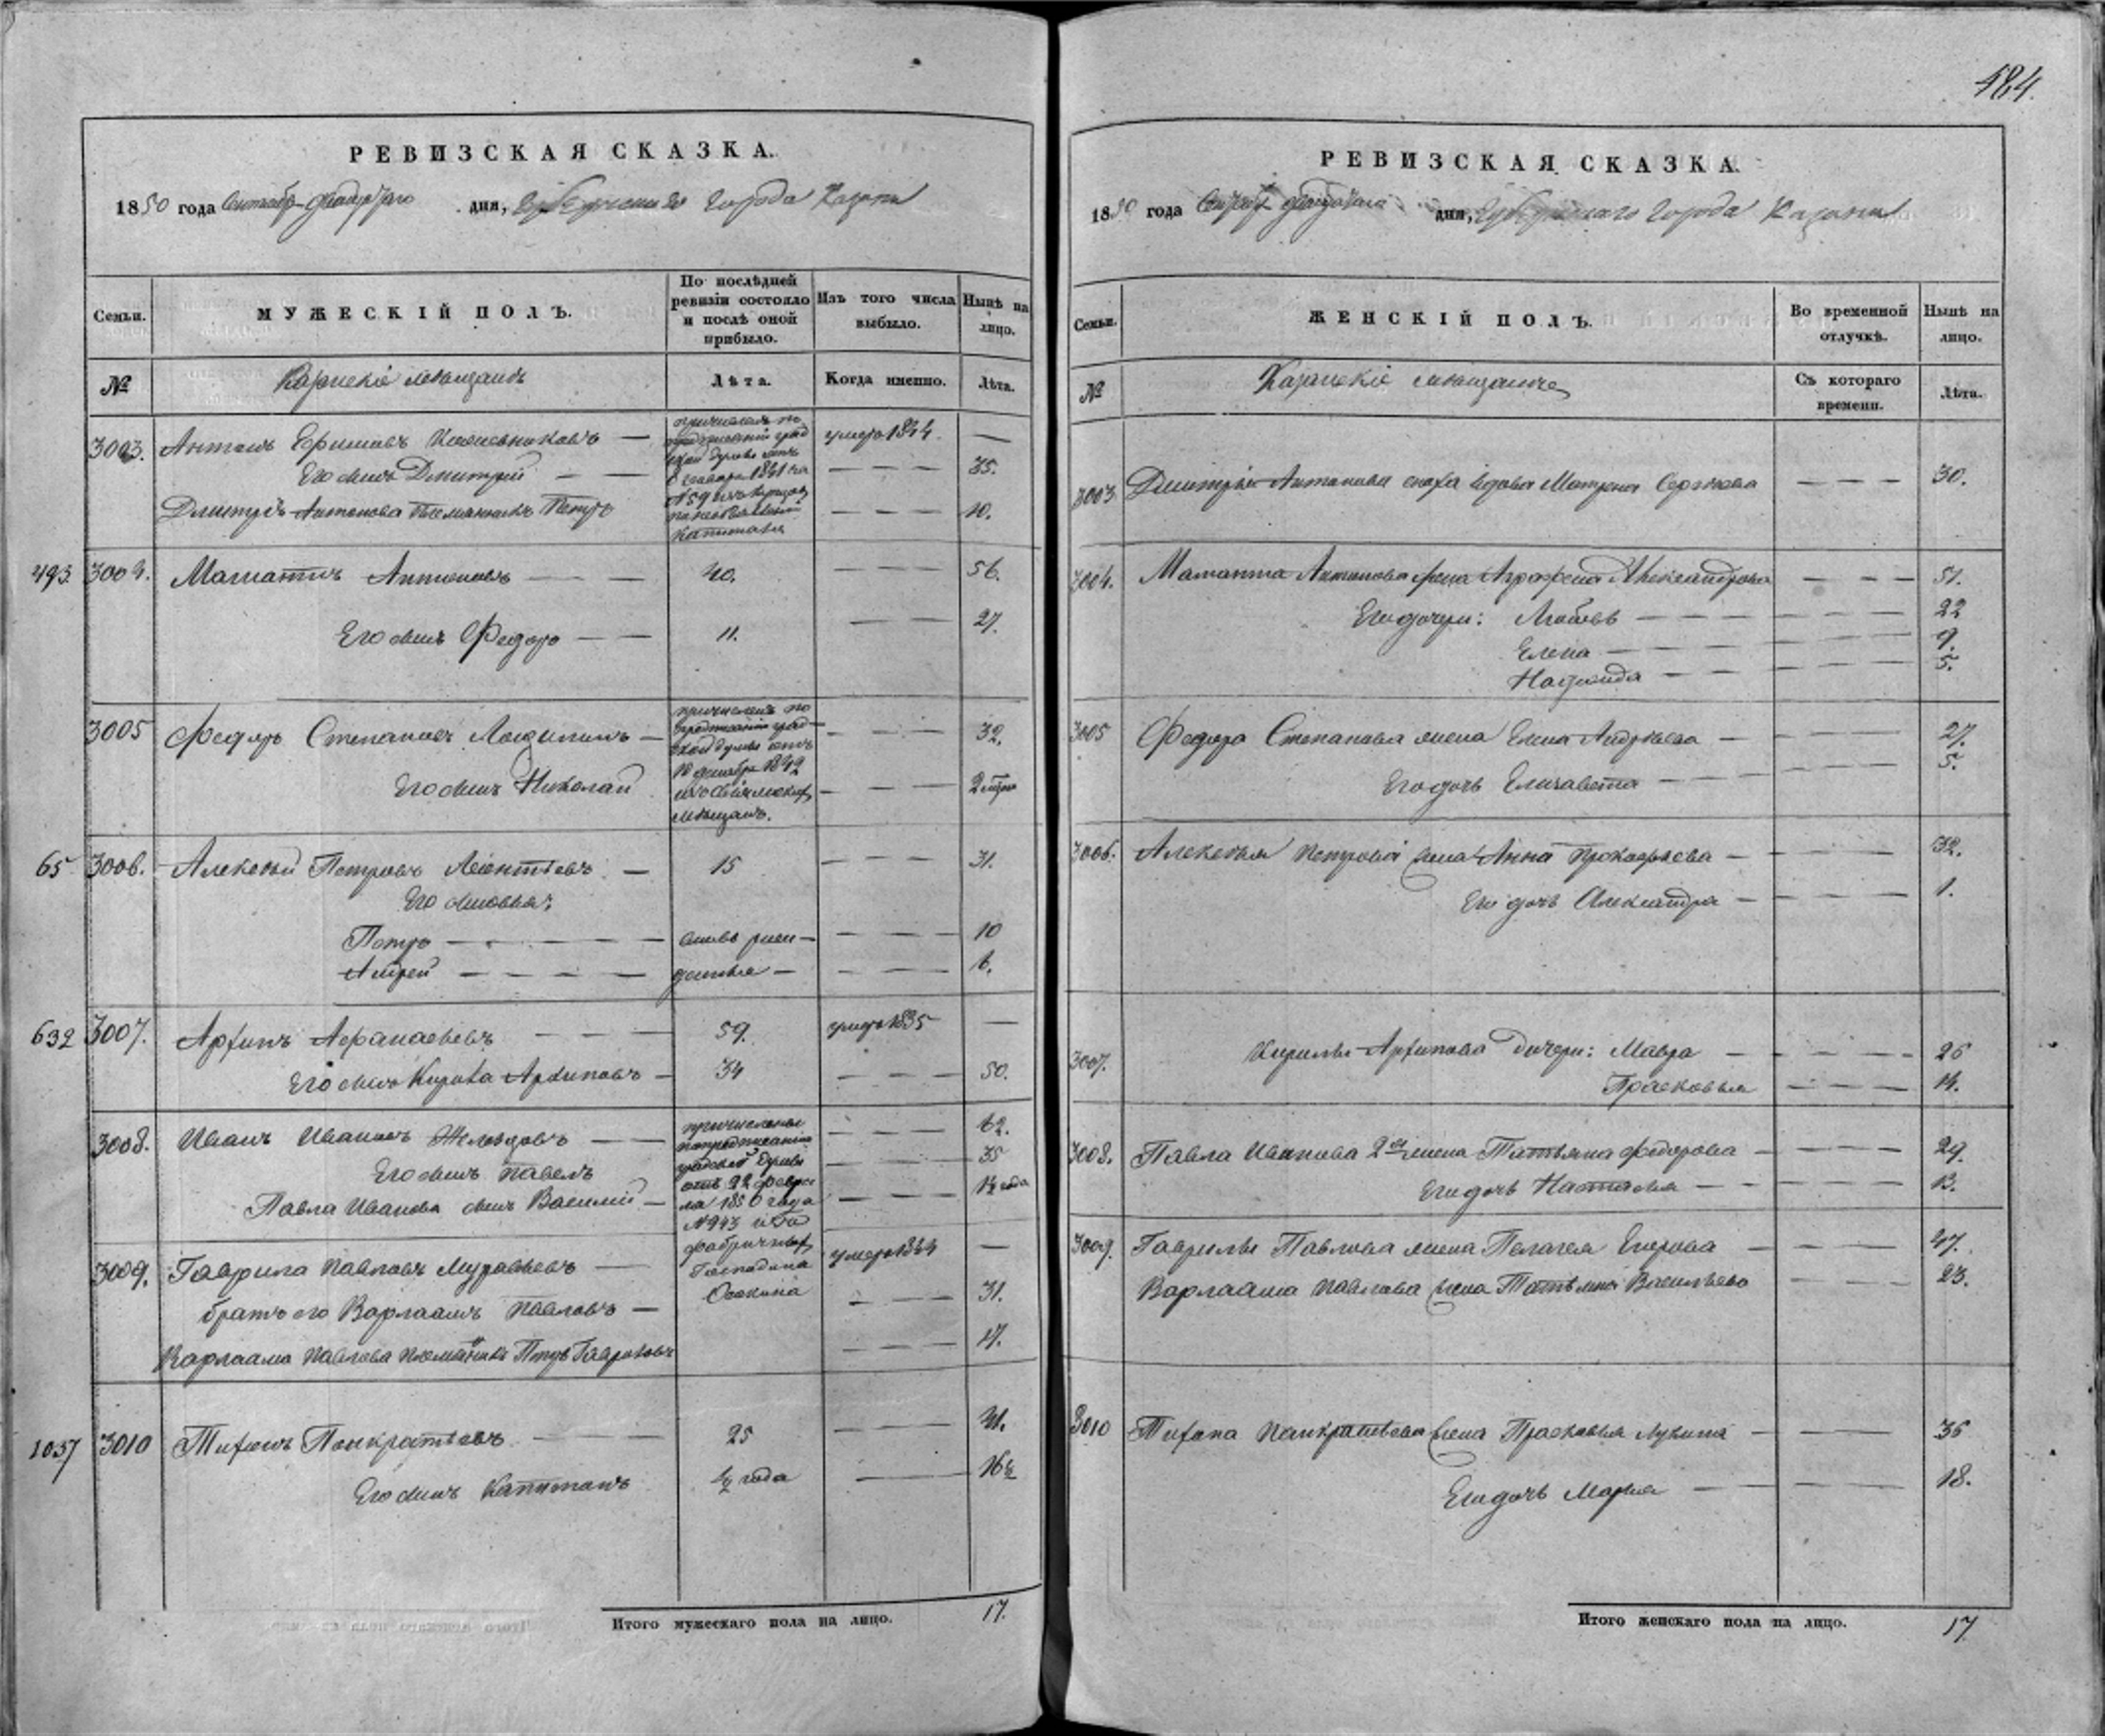 484.
РЕВИЗСКАЯ СКАЗКА.
1850 года дня, Губернскаго города Казани
Семьи. МУЖЕСКІЙ ПОЛЪ. По послѣдней ревизіи состояло и послѣ оной прибыло. Изъ того числа выбыло. Нынѣ на лицо.
№ Казанскіе мѣщане Лѣта. Когда именно. Лѣта.
3003. Антонъ — умеръ 1844. —
причисленъ по
Его сынъ Дмитрій — — — — — 35.
Дмитрія Антонова племянникъ Петръ — — — 10.
капитала
493. 3004. Антоновъ — — 40. — — — 56.
Его сынъ Федоръ — — 11. — — — 27.
3005 Федоръ Степановъ — — — — 32.
причисленъ по
думы отъ
декабря 1842
мѣщанъ.
Его сынъ Николай — — —
65 3006. Алексѣй Петровъ Леонтьевъ — 15 — — — 31.
Его сыновья:
Петръ — — — — вновь рож- — — — 10
Андрей — — — — денные — — — —
632 3007. Архипъ Афанасьевъ — — — 59. умеръ 1835 —
Его сынъ Кирила Архиповъ — 34 — — — 50.
3008. Иванъ Ивановъ — — — — — 62.
причислены
Его сынъ Павелъ — — — 35
Павла Иванова сынъ Василій — — — — 1½ года
отъ 22 февра
ля 1850 года
№ 943 изъ
фабричныхъ
Господина
Осокина
3009. Гаврила Павловъ Муравьевъ — умеръ 1844 —
братъ его Варлаамъ Павловъ — — — — 31.
Варлаама Павлова племянникъ Петръ Гавриловъ — — — 17.
1037 3010 Тихонъ Панкратьевъ — — — 25 — — — 41.
Его сынъ Капитонъ ½ года — 16½
Итого мужескаго пола на лицо. 17.
РЕВИЗСКАЯ СКАЗКА.
1850 года дня, Губернскаго города Казани
Семьи. ЖЕНСКІЙ ПОЛЪ. Во временной отлучкѣ. Нынѣ на лицо.
№ Казанскіе мѣщане Съ котораго времени. Лѣта.
3003 Дмитрія Антонова сноха вдова Матрена Сергѣева — — — 30.
3004. Антонова жена Аграфена Александрова — — — 51.
Его дочери: Любовь — — — — — — 22
Елена — — — — — — 9.
Надежда — — — — — 5.
3005 Федора Степанова жена Елена Андреева — — — — 27.
Его дочь Елизавета — — — — — — 5.
3006. Алексѣя Петрова жена Анна Прокофьева — — — — 32.
Его дочь Александра — — — — 1.
3007. Кирилы Архипова дочери: Мавра — — — — 26
Прасковья — — — — 14.
3008. Павла Иванова 2я жена Татьяна Федорова — — — — 29.
Его дочь Настасья — — — — — 13.
3009. Гаврилы Павлова жена Пелагея Егорова — — — — 47.
Варлаама Павлова жена Татьяна Васильева — — — 23.
3010 Тихона Панкратьева жена Прасковья Лукина — — — 36
Его дочь Марья — — — — 18.
Итого женскаго пола на лицо. 17